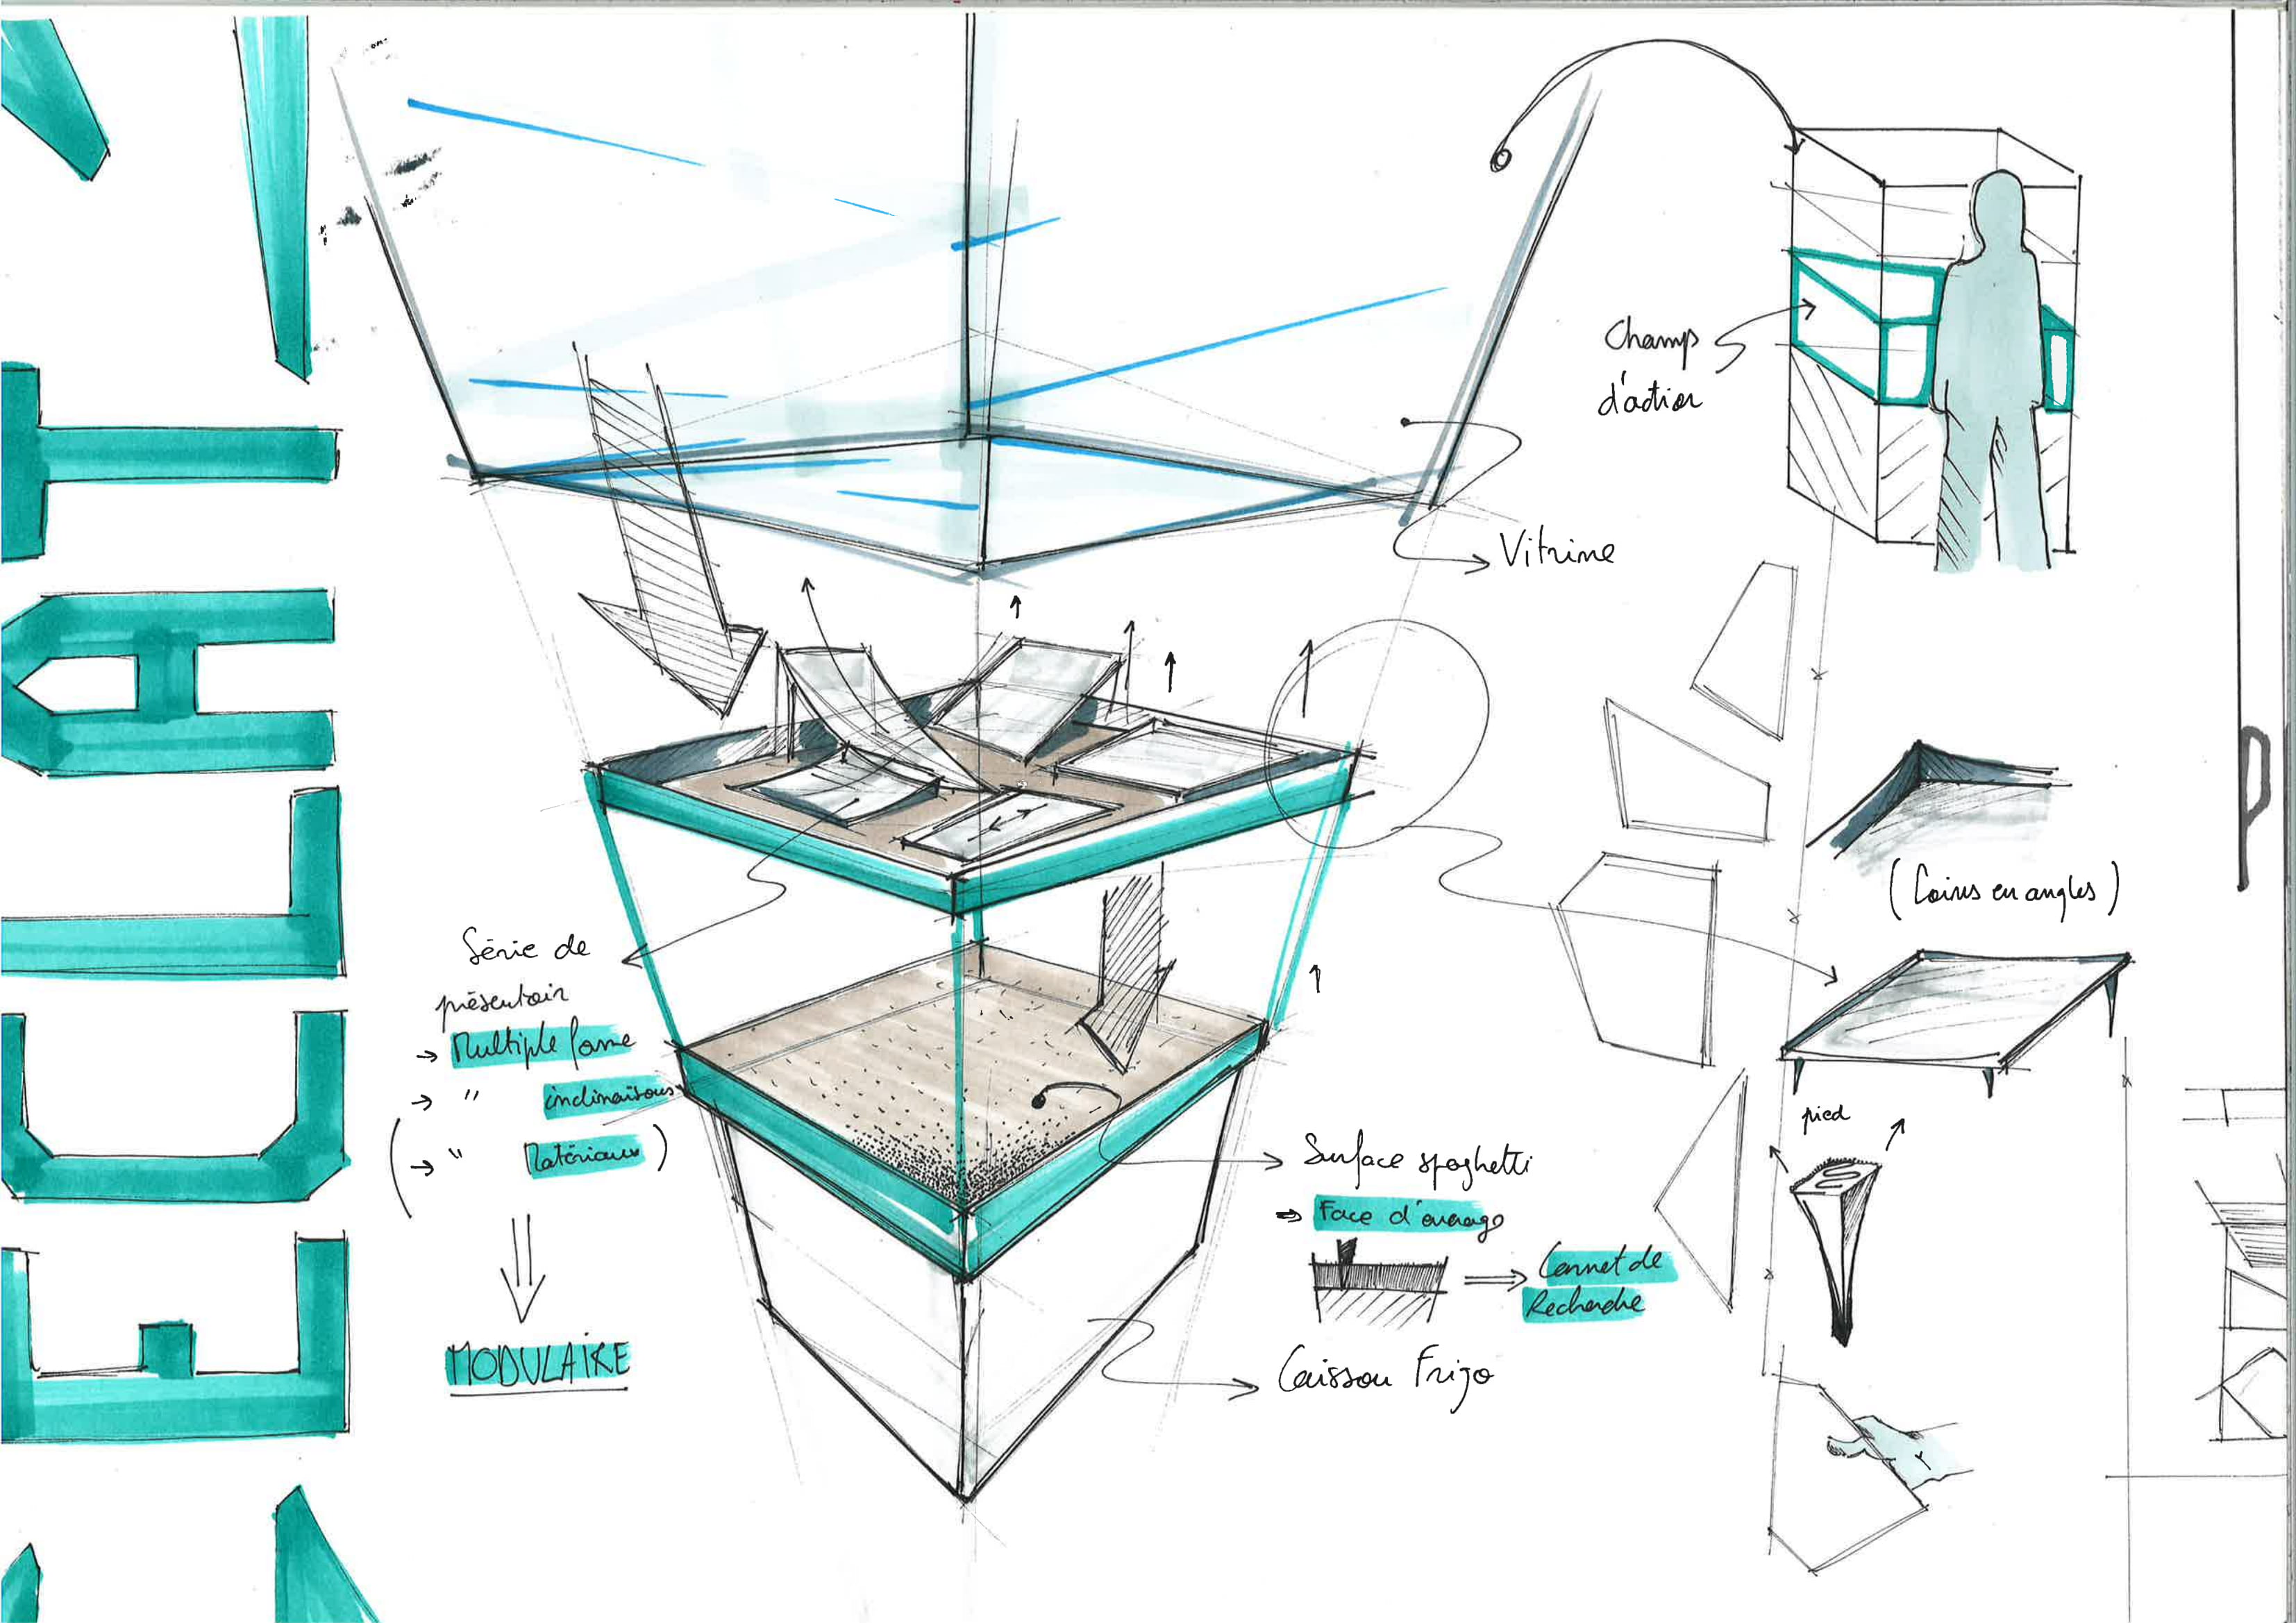 Champs
d'action
Vitrine
(Coins en angles)
Série de
présentoir
→ Multiple forme
→ " inclinaisons
(→ " Matériaux)
MODULAIRE
pied
Surface spaghetti
⇒ Face d'
Carnet de
Recherche
Caisson Frigo
ECLAT